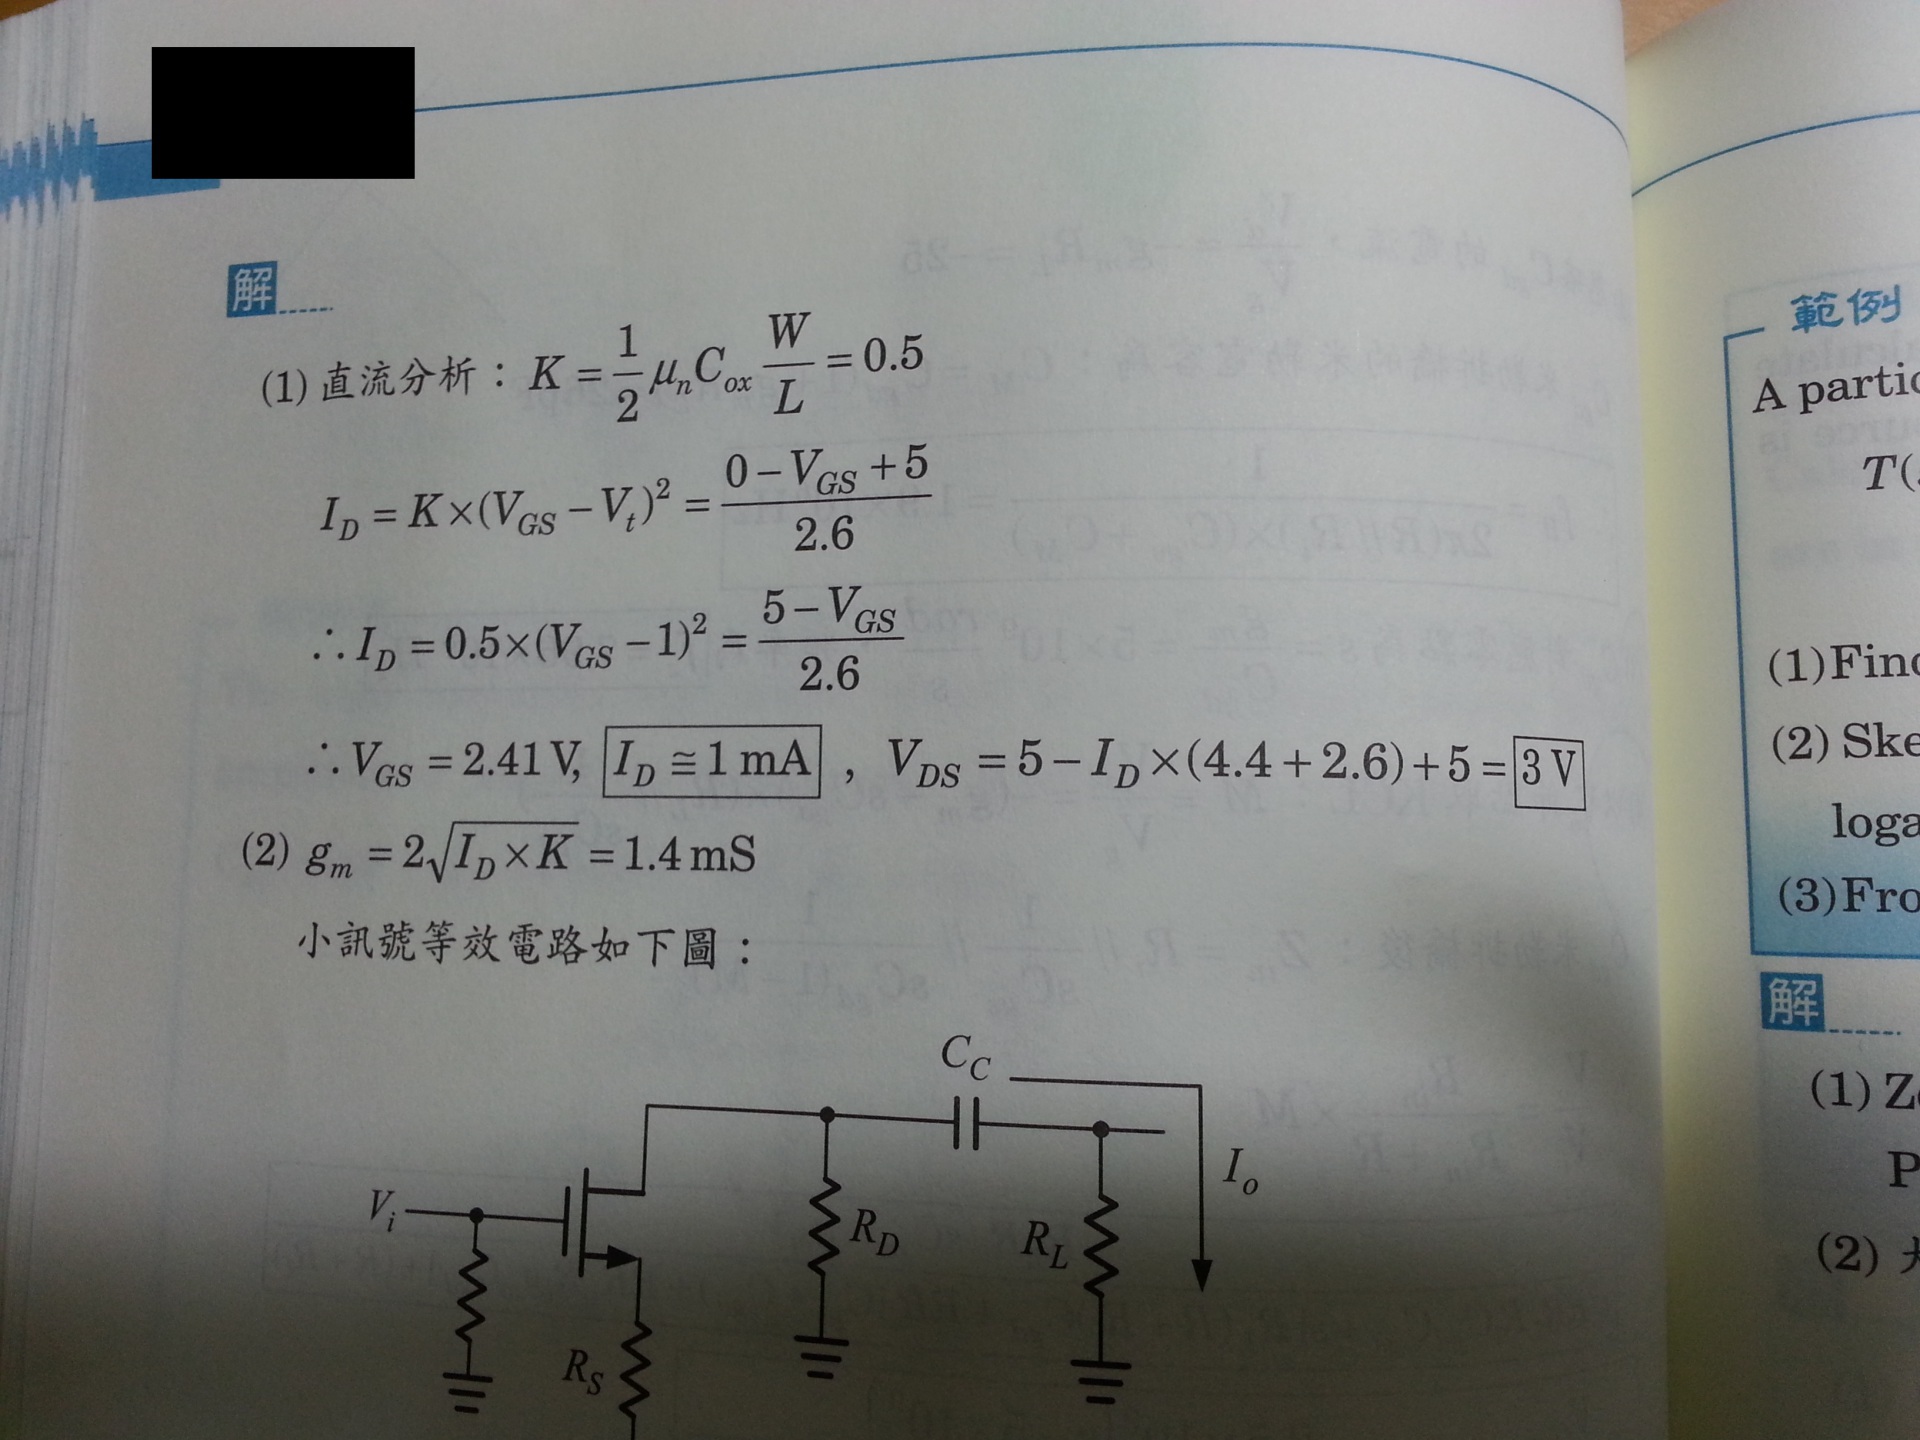 解
(1) 直流分析：K = 1/2 μnCox W/L = 0.5
ID = K×(VGS − Vt)² = (0 − VGS + 5)/2.6
∴ ID = 0.5×(VGS − 1)² = (5 − VGS)/2.6
∴ VGS = 2.41 V, ID ≅ 1 mA , VDS = 5 − ID×(4.4 + 2.6) + 5 = 3 V
(2) gm = 2√(ID×K) = 1.4 mS
小訊號等效電路如下圖：
CC
Vi
RD
RL
Io
RS
範例
A partic
T(
(1)Find
(2) Ske
loga
(3)Fro
解
(1) Z
P
(2)